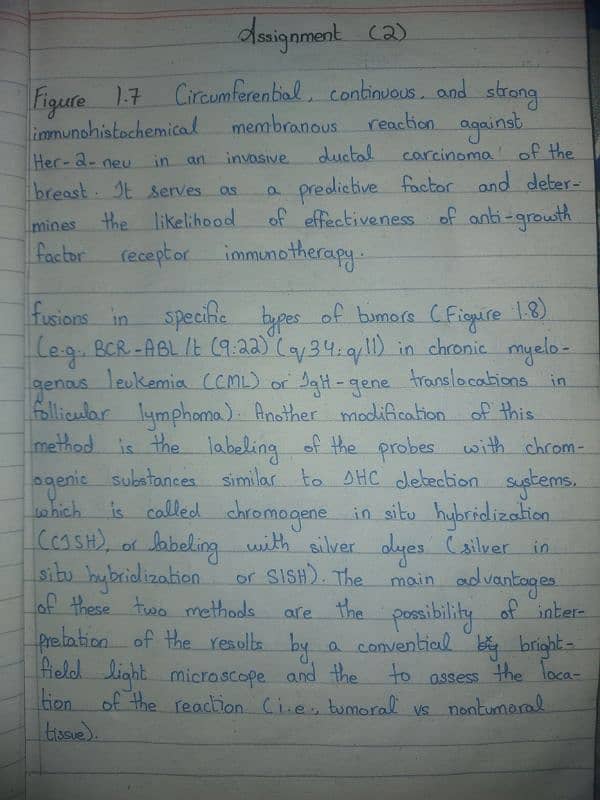 Assignment (2)
Figure 1.7 Circumferential, continuous, and strong
immunohistochemical membranous reaction against
Her-2-neu in an invasive ductal carcinoma of the
breast. It serves as a predictive factor and deter-
mines the likelihood of effectiveness of anti-growth
factor receptor immunotherapy.
fusions in specific types of tumors (Figure 1.8)
(e.g., BCR-ABL/t (9:22) (q34:q11) in chronic myelo-
genous leukemia (CML) or IgH-gene translocations in
follicular lymphoma). Another modification of this
method is the labeling of the probes with chrom-
ogenic substances similar to IHC detection systems,
which is called chromogene in situ hybridization
(CISH), or labeling with silver dyes (silver in
situ hybridization or SISH). The main advantages
of these two methods are the possibility of inter-
pretation of the results by a convential bright-
field light microscope and the to assess the loca-
tion of the reaction (i.e., tumoral vs nontumoral
tissue).